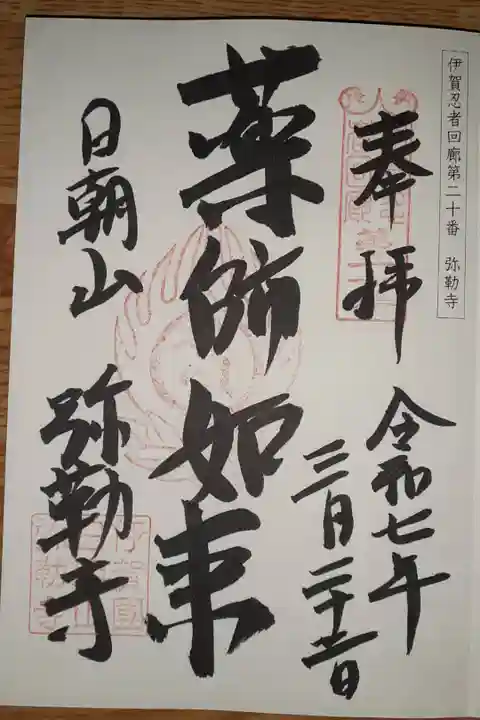 伊賀忍者回廊第二十番　弥勒寺
奉拝
令和七年
三月二十二日
薬師如来
日朝山　弥勒寺